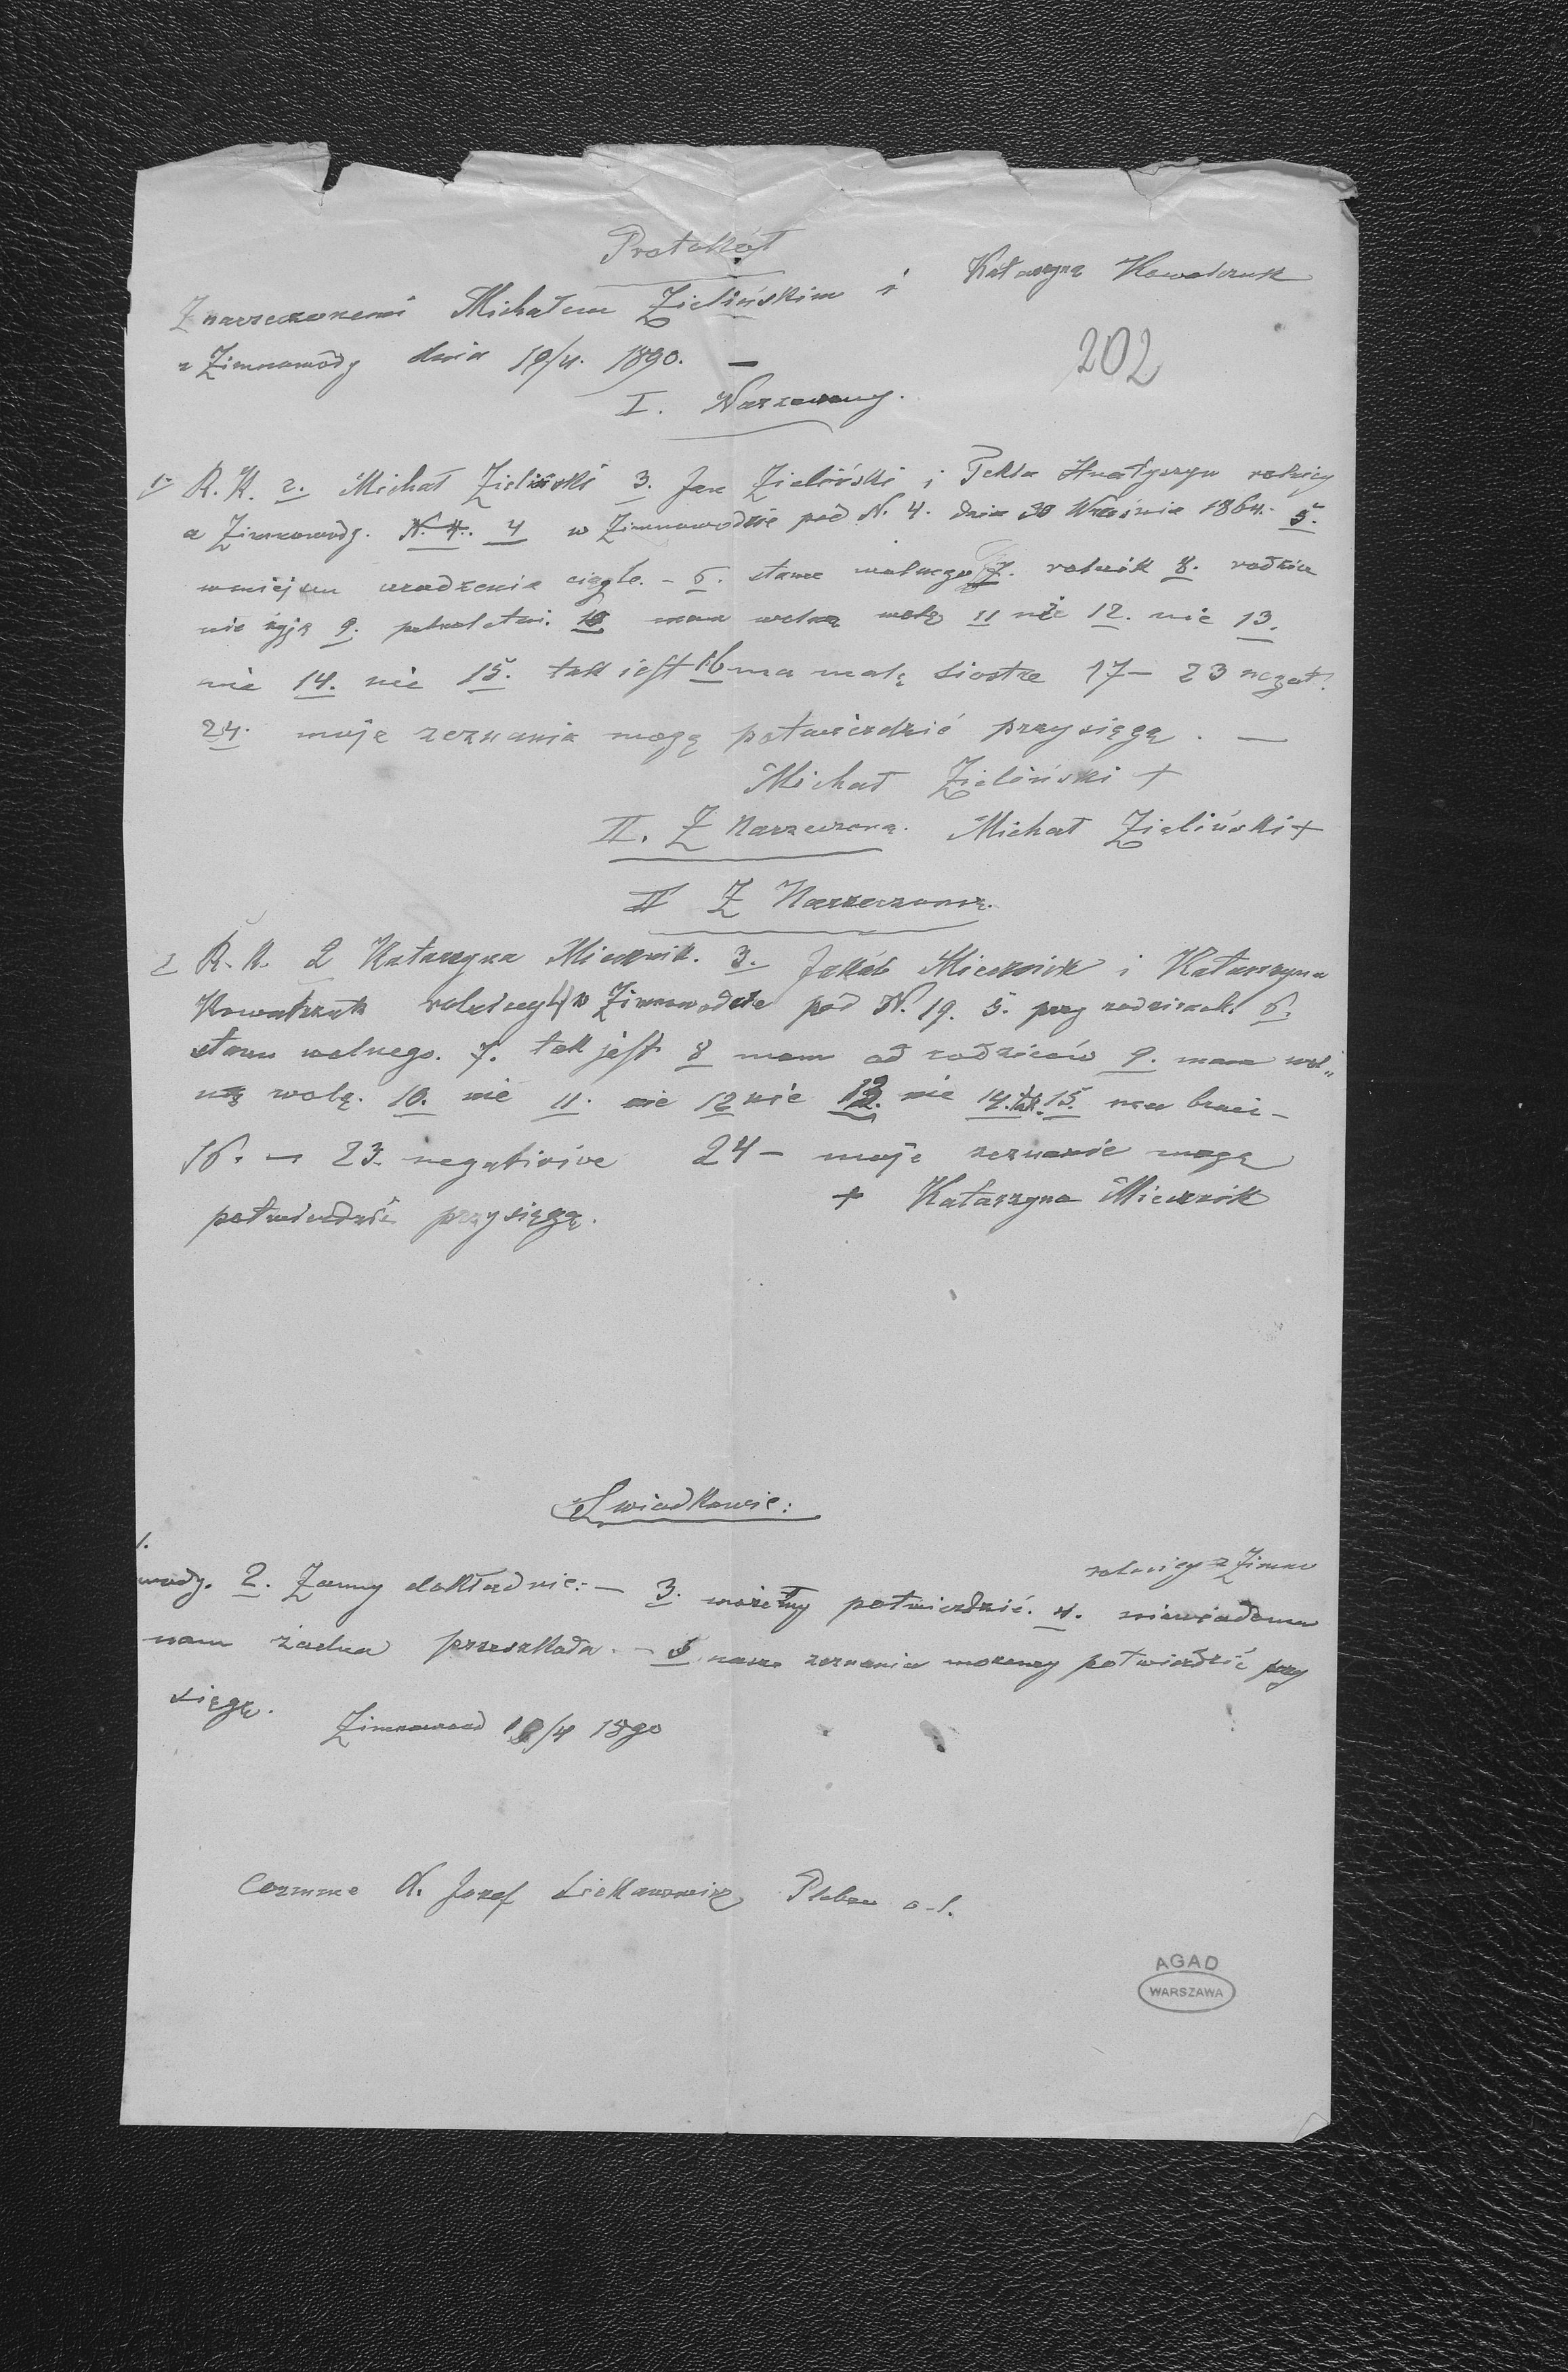 Protokół
Z narzeczonemi Michałem Zielińskim i Katarzyna Kowalczuk
z Zimnawody dnia 19/4. 1890. —
202
I. Narzeczony.
1. R. K. 2. Michał Zieliński 3. Jan Zieliński i Tekla Hnatyszyn rolnicy
z Zimnowody. N. 4. 4 w Zimnowodzie pod N. 4. dnia 30 Września 1864. 5.
w miejscu urodzenia ciągle. – 6. stanu wolnego 7. rolnik 8. rodzice
nie żyją 9. pełnoletni. 10 mam wolną wolę 11 nie 12. nie 13.
nie 14. nie 15. tak jest 16 ma małą siostrę 17 – 23 negat.
24. moje zeznania mogę potwierdzić przysięgą. —
Michał Zieliński +
II. Z Narzeczoną. Michał Zieliński +
II Z Narzeczoną.
1 R. K. 2 Katarzyna Miecznik. 3. Jakób Miecznik i Katarzyna
Kowalczuk rolnicy 4) w Zimnowodzie pod N. 19. 5. przy rodzicach. 6.
stanu wolnego. 7. tak jest 8 mam od rodziców 9. mam wol„
ną wolę. 10. nie 11. nie 12 nie 13. nie 14. tak. 15. ma braci –
16. – 23. negativive 24 – moje zeznanie mogę
potwierdzić przysięgą.
+ Katarzyna Miecznik
Swiadkowie:
1.
rolnicy z Zimno
wody. 2. Znamy dokładnie. – 3. możemy potwierdzić. 4. niewiadoma
nam żadna przeszkoda. – 5 nasze zeznania możemy potwierdzić przy
sięgą.
Zimnawoda 19/4 1890
Coramme X. Jozef Pleban o. l.
AGAD
WARSZAWA